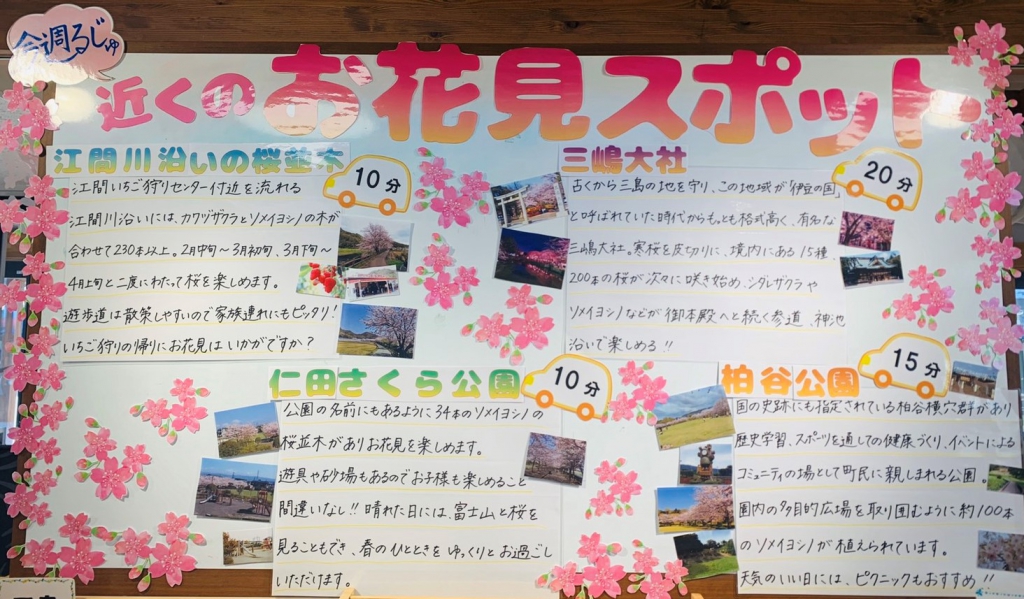 今週るじゅ
近くのお花見スポット
江間川沿いの桜並木
10分
江間いちご狩りセンター付近を流れる
江間川沿いには、カワヅザクラとソメイヨシノの木が
合わせて230本以上。2月中旬～3月初旬、3月下旬～
4月上旬と二度にわたって桜を楽しめます。
遊歩道は散策しやすいので家族連れにもピッタリ!
いちご狩りの帰りにお花見はいかがですか？
三嶋大社
20分
古くから三島の地を守り、この地域が「伊豆の国」
と呼ばれていた時代からもっとも格式高く、有名な
三嶋大社。寒桜を皮切りに、境内にある15種、
200本の桜が次々に咲き始め、シダレザクラや
ソメイヨシノなどが御本殿へと続く参道、神池
沿いで楽しめる!!
仁田さくら公園
10分
公園の名前にもあるように34本のソメイヨシノの
桜並木がありお花見を楽しめます。
遊具や砂場もあるのでお子様も楽しめること
間違いなし!!晴れた日には、富士山と桜を
見ることもでき、春のひとときをゆっくりとお過ごし
いただけます。
柏谷公園
15分
国の史跡にも指定されている柏谷横穴群があり
歴史学習、スポーツを通しての健康づくり、イベントによる
コミュニティの場として町民に親しまれる公園。
園内の多目的広場を取り囲むように約100本
のソメイヨシノが植えられています。
天気のいい日には、ピクニックもおすすめ!!